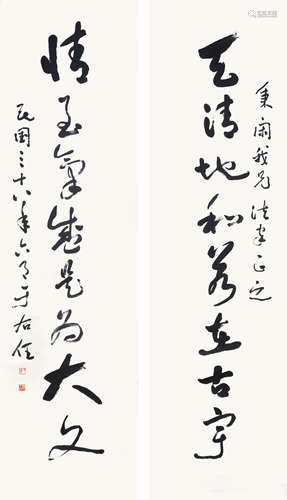 秉閑我兄法家正之
天清地和若在古宇
情至氣盛是為大文
民国三十八年六月于右任